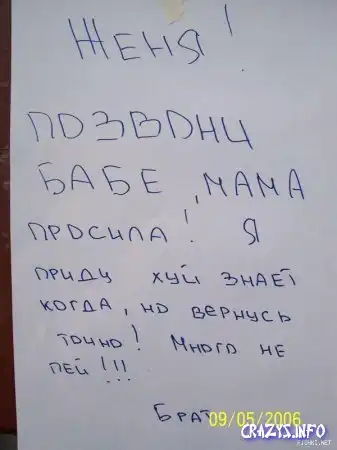 ЖЕНЯ!
ПОЗВОНИ
БАБЕ, МАМА
ПРОСИЛА! Я
ПРИДУ ХУЙ ЗНАЕТ
КОГДА, НО ВЕРНУСЬ
ТОЧНО! МНОГО НЕ
ПЕЙ!!!
БРАТ
09/05/2006
CRAZYS.INFO